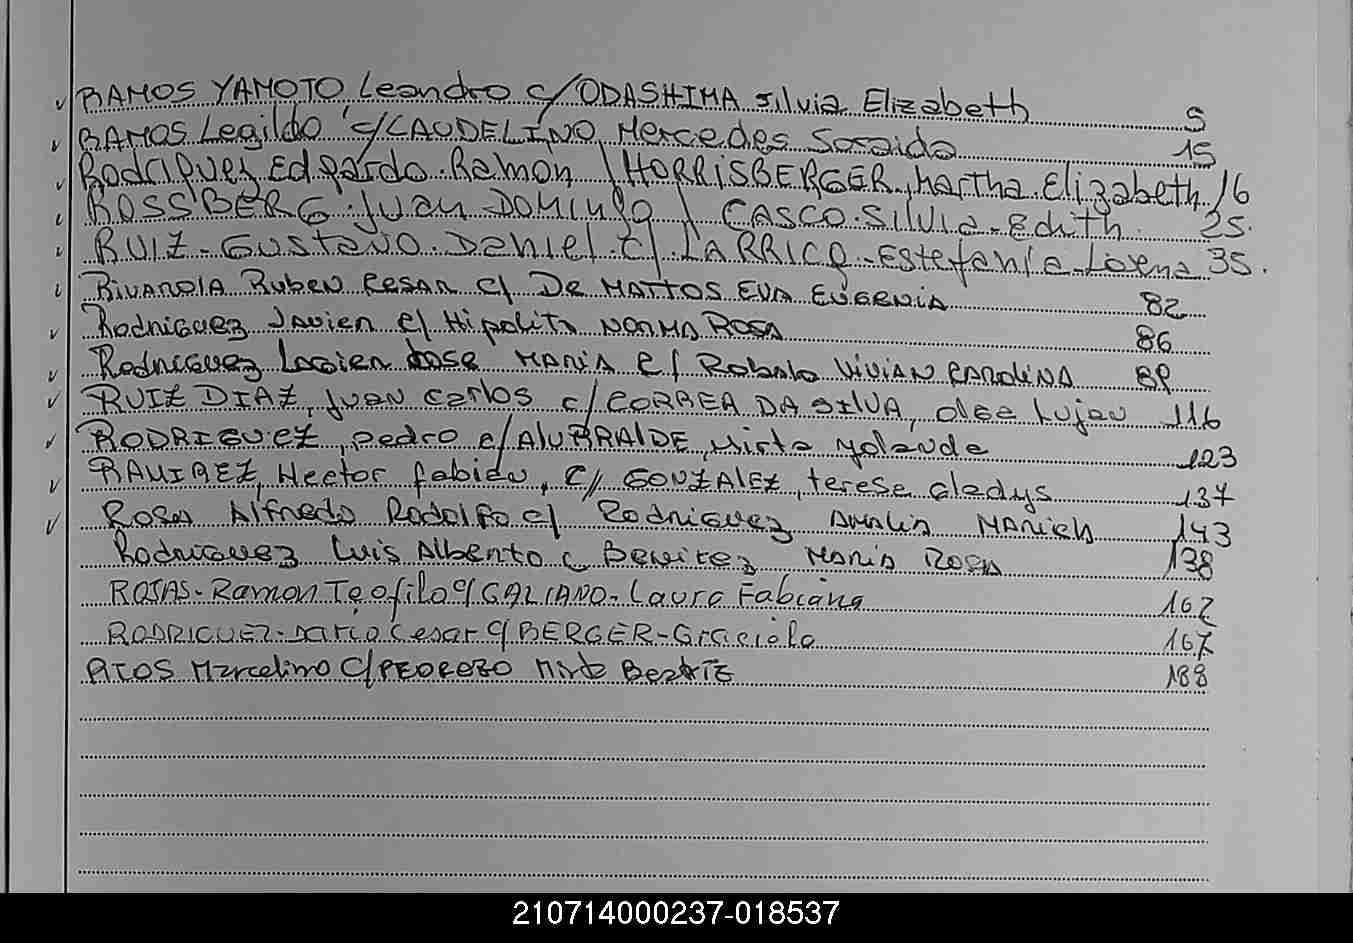 ✓ RAMOS YAMOTO, Leandro c/ ODASHIMA Silvia Elizabeth 5
✓ RAMOS Legildo c/ CAUDELINO, Mercedes Soraida 15
✓ Rodriguez Edgardo Ramon / HORRISBERGER, Martha Elizabeth 16
✓ ROSSBERG Juan DOMINGO / CASCO Silvia Edith 25.
✓ RUIZ - GUSTAVO Daniel c/ LARRICQ - Estefania - Lorena 35.
✓ Rivarola Ruben Cesar c/ De MATTOS EVA EUGENIA 82
✓ Rodriguez Javier c/ Hipolito NORMA ROSA 86
✓ Rodriguez Jose MARIA c/ Robalo VIVIAN CAROLINA
✓ RUIZ DIAZ, Juan Carlos c/ CORREA DA SILVA, Olga Lujan 116
✓ RODRIGUEZ, pedro c/ ALURRALDE, Mirta Yolanda 123
✓ RAMIREZ, Hector fabian, c/ GONZALEZ, teresa gladys 137
✓ ROSA Alfredo Rodolfo c/ Rodriguez AMALIA 143
Rodriguez Luis Alberto c Benitez MARIA ROSA 138
ROJAS - Ramon Teofilo c/ GALIANO - Laura Fabiana 162
RODRIGUEZ - Dario Cesar c/ BERGER - Graciela 167
RIOS Marcelino c/ PEDROZO Mirta Beatriz 188
210714000237-018537